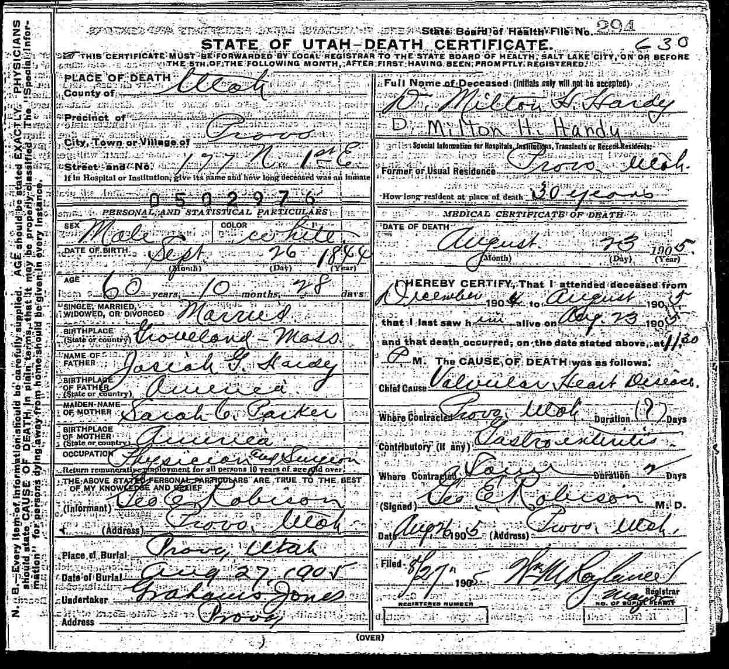 State Board of Health File No. 294
STATE OF UTAH-DEATH CERTIFICATE.
630
THIS CERTIFICATE MUST BE FORWARDED BY LOCAL REGISTRAR TO THE STATE BOARD OF HEALTH, SALT LAKE CITY, ON OR BEFORE
THE 5TH OF THE FOLLOWING MONTH, AFTER FIRST HAVING BEEN PROMPTLY REGISTERED.
N. B.—Every item of information should be carefully supplied. AGE should be stated EXACTLY. PHYSICIANS
should state CAUSE OF DEATH in plain terms, that it may be properly classified. The "Special Infor-
mation" for persons dying away from home should be given in every instance.
PLACE OF DEATH
County of Utah
Precinct of
City, Town or Village of Provo
Street and No. 177 N. 1st E
If in Hospital or Institution, give its name and how long deceased was an inmate
0502976
PERSONAL AND STATISTICAL PARTICULARS
SEX Male COLOR white
DATE OF BIRTH Sept 26 1844
(Month) (Day) (Year)
AGE
60 years, 10 months, 28 days
SINGLE, MARRIED,
WIDOWED, OR DIVORCED Married
BIRTHPLACE
(State or country) Groveland - Mass
NAME OF
FATHER Josiah G. Hardy
BIRTHPLACE
OF FATHER
(State or country) America
MAIDEN NAME
OF MOTHER Sarah C. Parker
BIRTHPLACE
OF MOTHER
(State or country) America
OCCUPATION Physician and Surgeon
Return remunerative employment for all persons 10 years of age and over
THE ABOVE STATED PERSONAL PARTICULARS ARE TRUE TO THE BEST
OF MY KNOWLEDGE AND BELIEF
(Informant) Geo E Robison
(Address) Provo, Utah
Place of Burial Provo, Utah
Date of Burial Aug 27, 1905
Undertaker Grahams Jones
Address Provo
Full Name of Deceased (Initials only will not be accepted)
D. Milton H. Hardy
D. Milton H. Hardy
Special Information for Hospitals, Institutions, Transients or Recent Residents:
Former or Usual Residence Provo Utah
How long resident at place of death 30 years
MEDICAL CERTIFICATE OF DEATH
DATE OF DEATH
August 23 1905
(Month) (Day) (Year)
I HEREBY CERTIFY, That I attended deceased from
December 1904 to August 1905
that I last saw him alive on Aug. 23 1905
and that death occurred, on the date stated above, at 11:30
P. M. The CAUSE OF DEATH was as follows:
Chief Cause Valvular Heart Disease
Where Contracted Provo, Utah Duration (?) Days
Contributory (if any) Gastroenteritis
Where Contracted Duration 2 Days
(Signed) Geo E. Robison M. D.
Date 1905 (Address) Provo, Utah.
Filed 8/27 1905 Wm M Roylance
Registrar
REGISTERED NUMBER
NO. OF BURIAL PERMIT
(OVER)